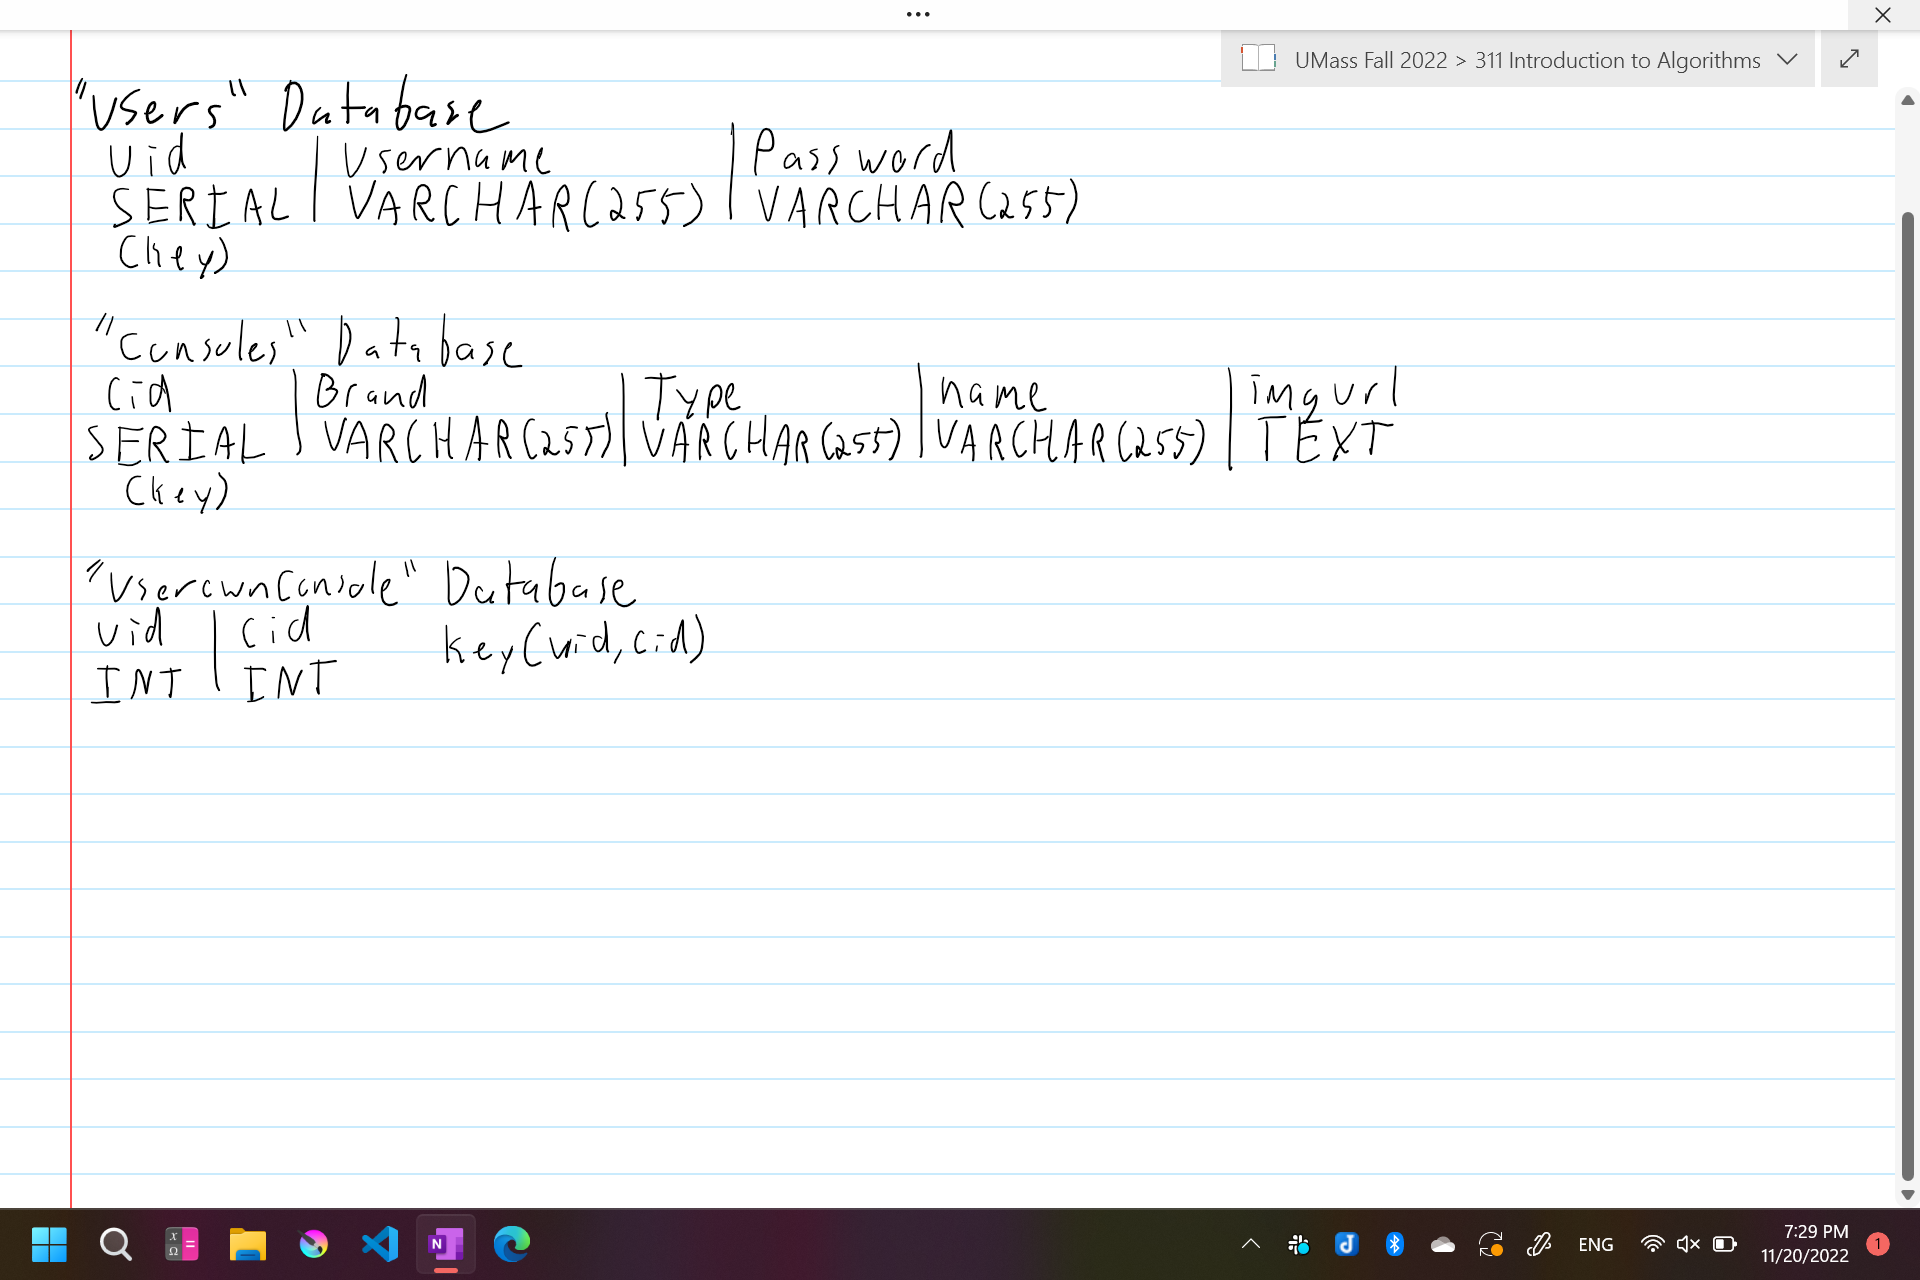 UMass Fall 2022 > 311 Introduction to Algorithms
"Users" Database
uid | Username | Password
SERIAL | VARCHAR(255) | VARCHAR(255)
(key)
"Consoles" Database
Cid | Brand | Type | name | imgurl
SERIAL | VARCHAR(255) | VARCHAR(255) | VARCHAR(255) | TEXT
(key)
"UserownConsole" Database
uid | cid key(uid,cid)
INT | INT
ENG
7:29 PM
11/20/2022
1